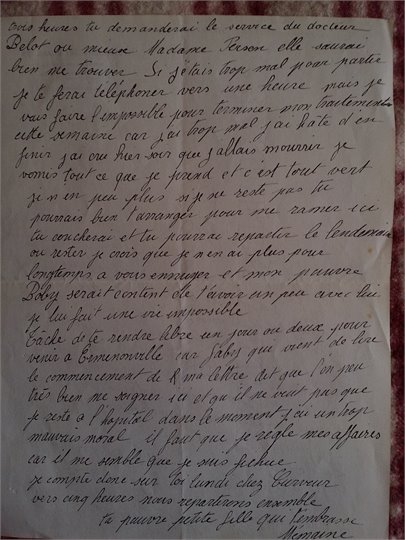 trois heures tu demanderai le service du docteur
Belot ou mieux Madame Person elle saurai
bien me trouver Si j'étais trop mal pour partir
je te ferai téléphoner vers une heure mais je
vais faire l'impossible pour terminer mon traitement
cette semaine car j'ai trop mal j'ai hâte d'en
finir j'ai cru hier soir que j'allais mourrir je
vomis tout ce que je prend et c'est tout vert
je n'en peu plus si je ne reste pas tu
pourrais bien t'arranger pour me ramer ici
tu coucherai et tu pourrai repartir le lendemain
ou rester je crois que je n'en ai plus pour
longtemps a vous ennuyer et mon pauvre
Baby serait content de t'avoir un peu avec lui
je lui fait une vie impossible
Tâche de te rendre libre un jour ou deux pour
venir a Ermenonville car Baby qui vient de lire
le commencement de ma lettre dit que l'on peu
très bien me soigner ici et qu'il ne veut pas que
je reste a l'hopital dans le moment j'ai un trop
mauvais moral il faut que je règle mes affaires
car il me semble que je suis fichue
je compte donc sur toi lundi chez
vers cinq heures nous repartirons ensemble
ta pauvre petite fille qui t'embrasse